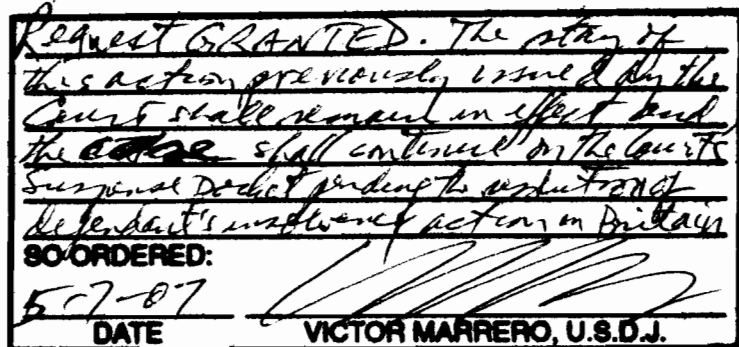 Request GRANTED. The stay of
this action previously issued by the
Court shall remain in effect and
the case shall continue on the Court's
Suspense Docket pending the resolution of
defendant's insolvency action in Britain
SO ORDERED:
5-7-07
DATE VICTOR MARRERO, U.S.D.J.